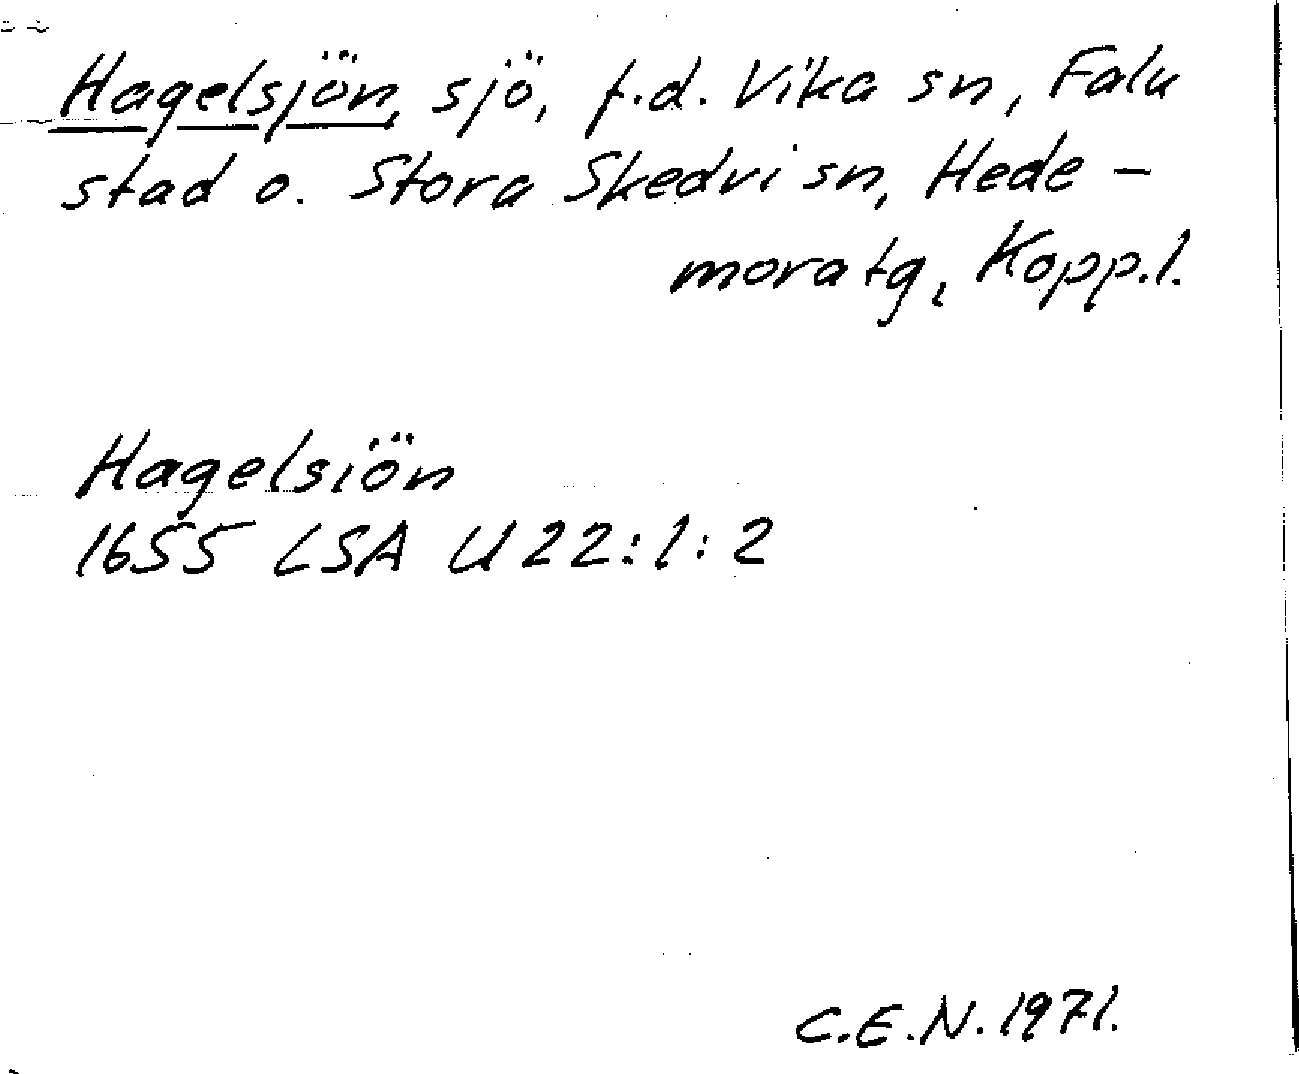 Hagelsjön, sjö, f.d. Vika sn, Falu
stad o. Stora Skedvi sn, Hede-
mora tg, Kopp.l.
Hagelsiön
1655 LSA U 22:1:2
C.E.N. 1971.